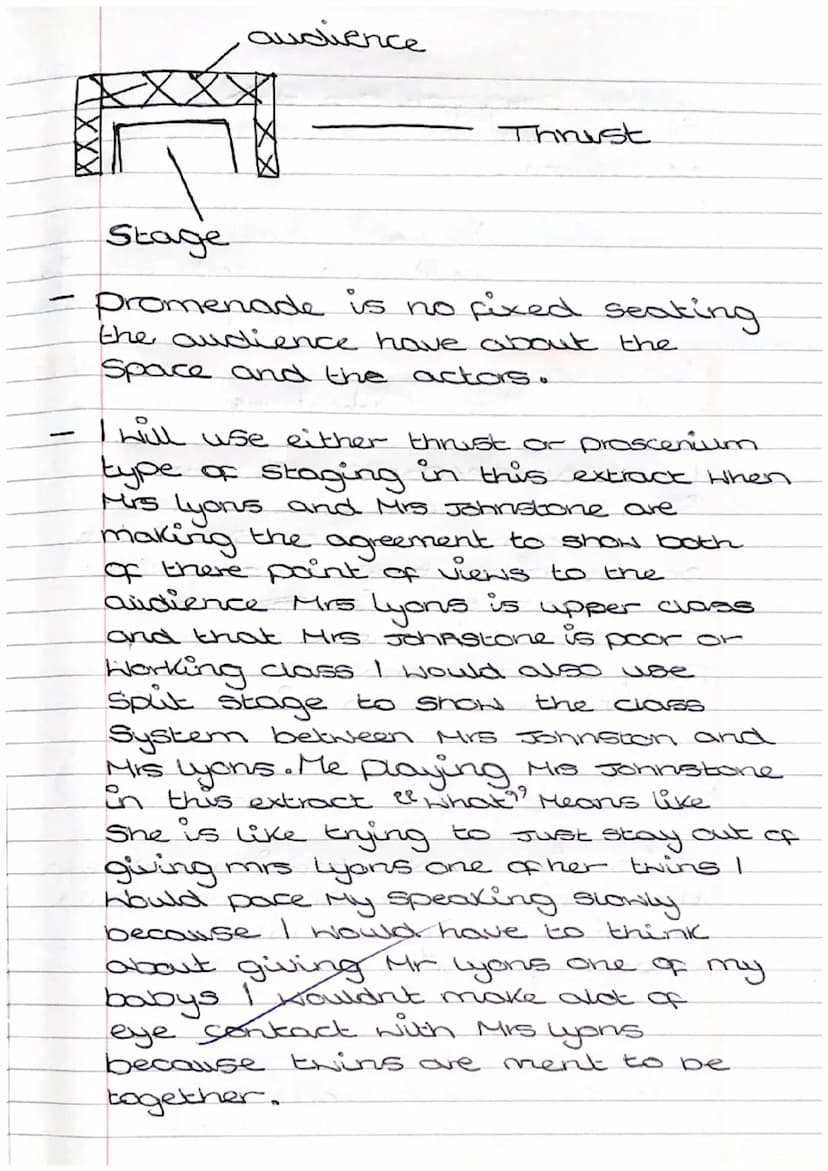 audience
Thrust
Stage
- Promenade is no fixed seating
the audience have about the
space and the actors.
- I will use either thrust or proscenium
type of staging in this extract when
Mrs Lyons and Mrs Johnstone are
making the agreement to show both
of there point of views to the
audience Mrs Lyons is upper class
and that Mrs Johnstone is poor or
working class I would also use
split stage to show the class
System between Mrs Johnston and
Mrs Lyons. Me playing Mrs Johnstone
in this extract "what" Means like
She is like trying to Just stay out of
giving mrs Lyons one of her twins I
would pace My speaking slowly
because I would have to think
about giving Mr Lyons one of my
babys I wouldnt make alot of
eye contact with Mrs Lyons
because twins are ment to be
together.